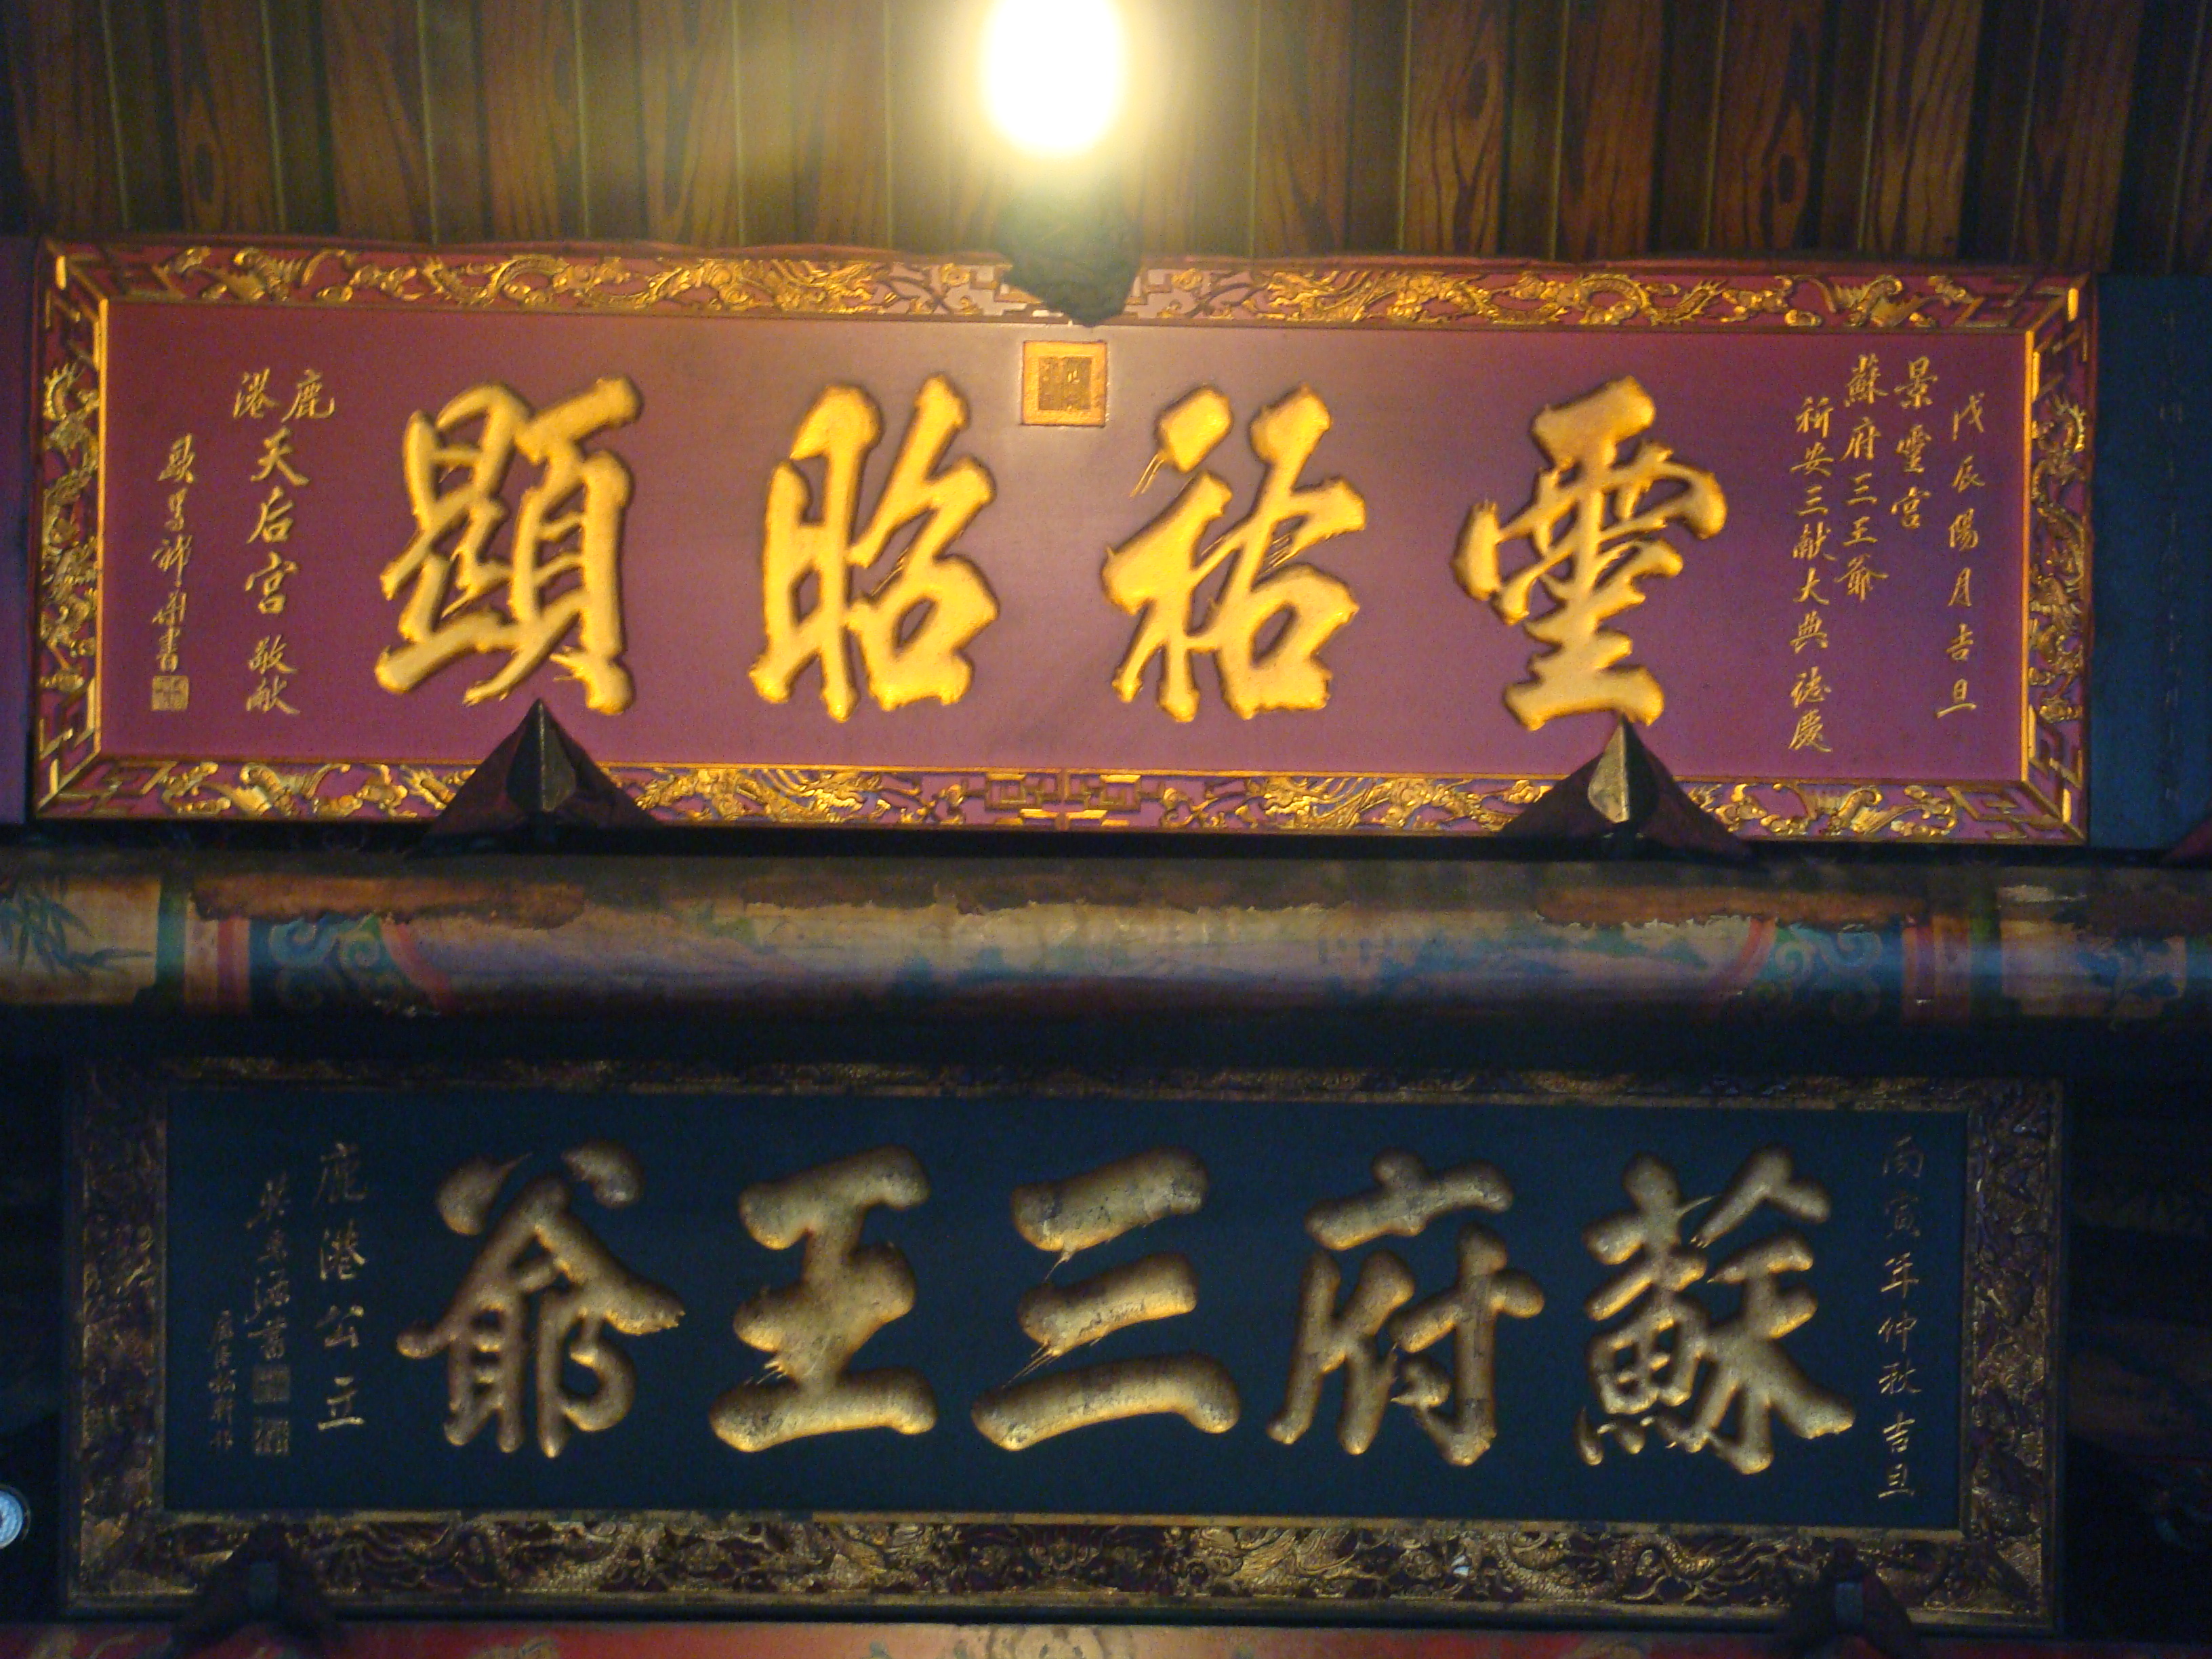 戊辰陽月吉旦
景靈宮
蘇府三王爺
祈安三献大典誌慶
靈祐昭顯
鹿港天后宮敬献
丙寅年仲秋吉旦
蘇府三王爺
鹿港公立